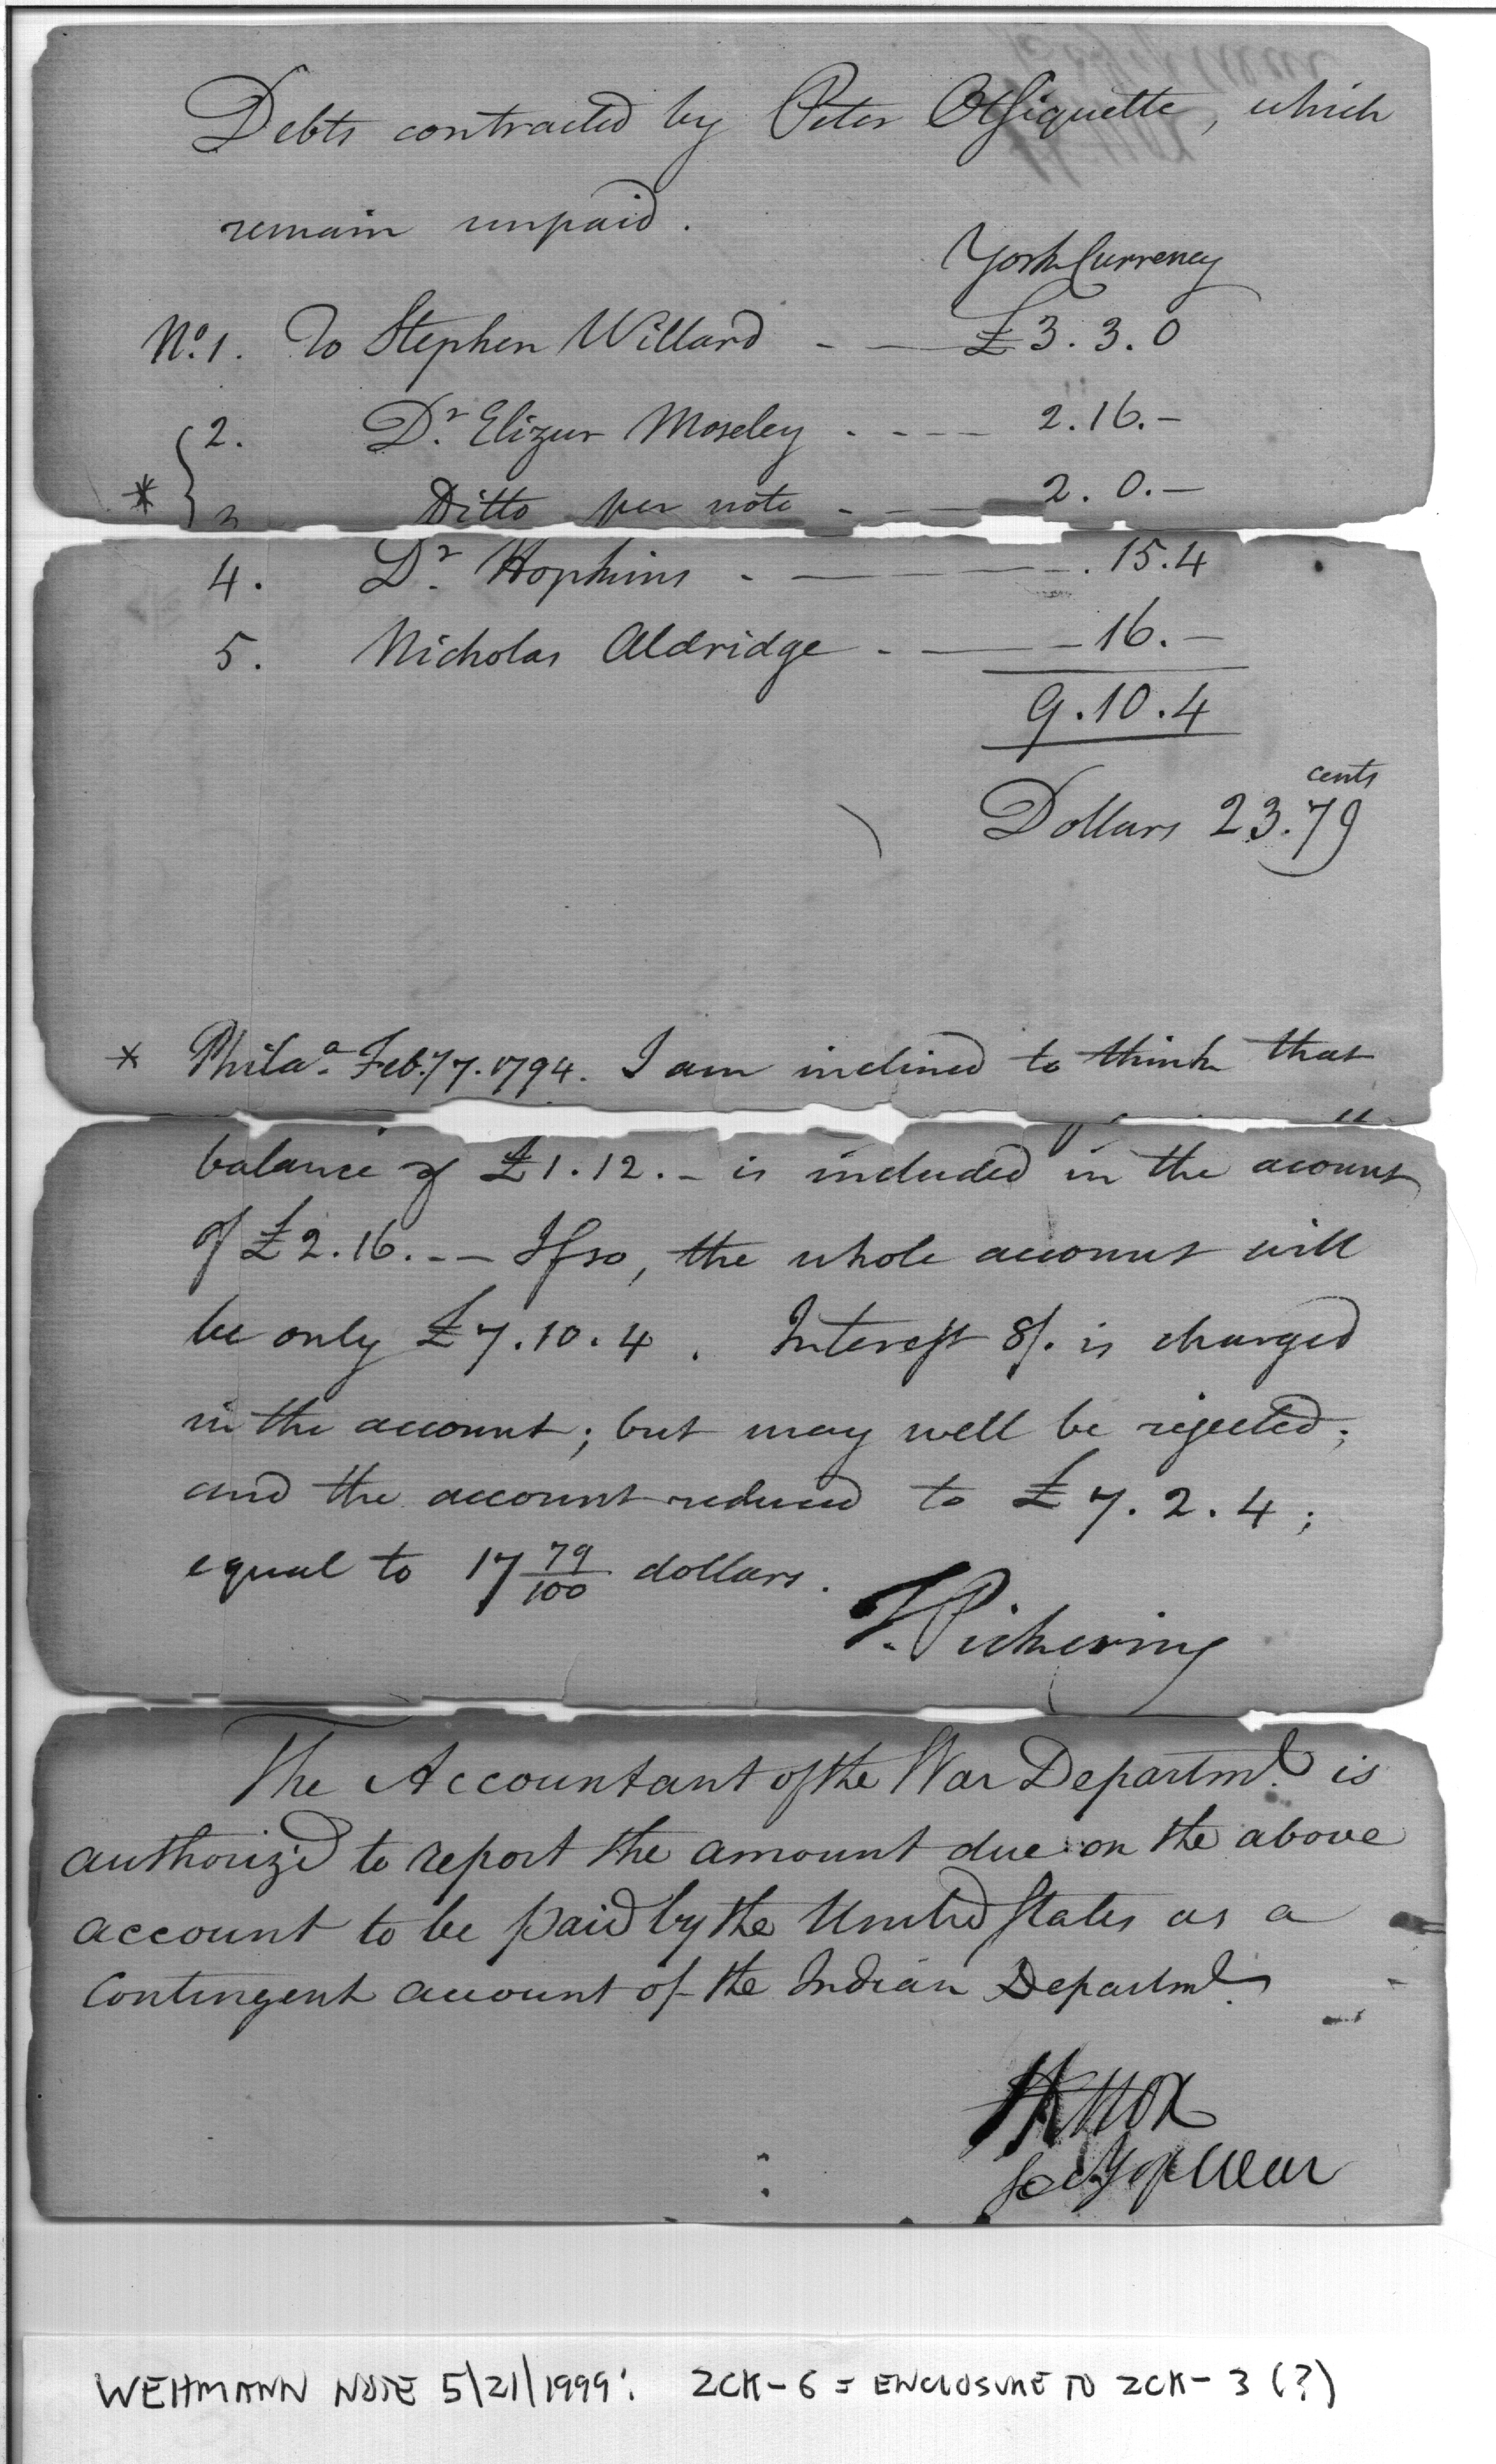 Debts contracted by Peter Otsiquette, which
remain unpaid.
York Currency
No. 1. To Stephen Willard - - £3. 3. 0
2. Dr. Elizur Moseley - - - - 2. 16. -
* 3 Ditto per note - - - 2. 0. -
4. Dr. Hopkins - - . 15. 4
5. Nicholas Aldridge - - - 16. -
9. 10. 4
cents
Dollars 23. 79
* Philaa. Feby 7. 1794. I am inclined to think that
balance of £1. 12. - is included in the acount
of £2. 16. - - If so, the whole account will
be only £7. 10. 4. Interest 8/. is charged
in the account; but may well be rejected;
and the account reduced to £7. 2. 4;
equal to 17 79/100 dollars.
T. Pickering
The Accountant of the War Departmt. is
authoriz'd to report the amount due on the above
account to be paid by the United States as a
Contingent account of the Indian Departmt.
HKnox
Secy of War
WEHMANN NOTE 5/21/1999: ZCK-6 = ENCLOSURE TO ZCK-3 (?)